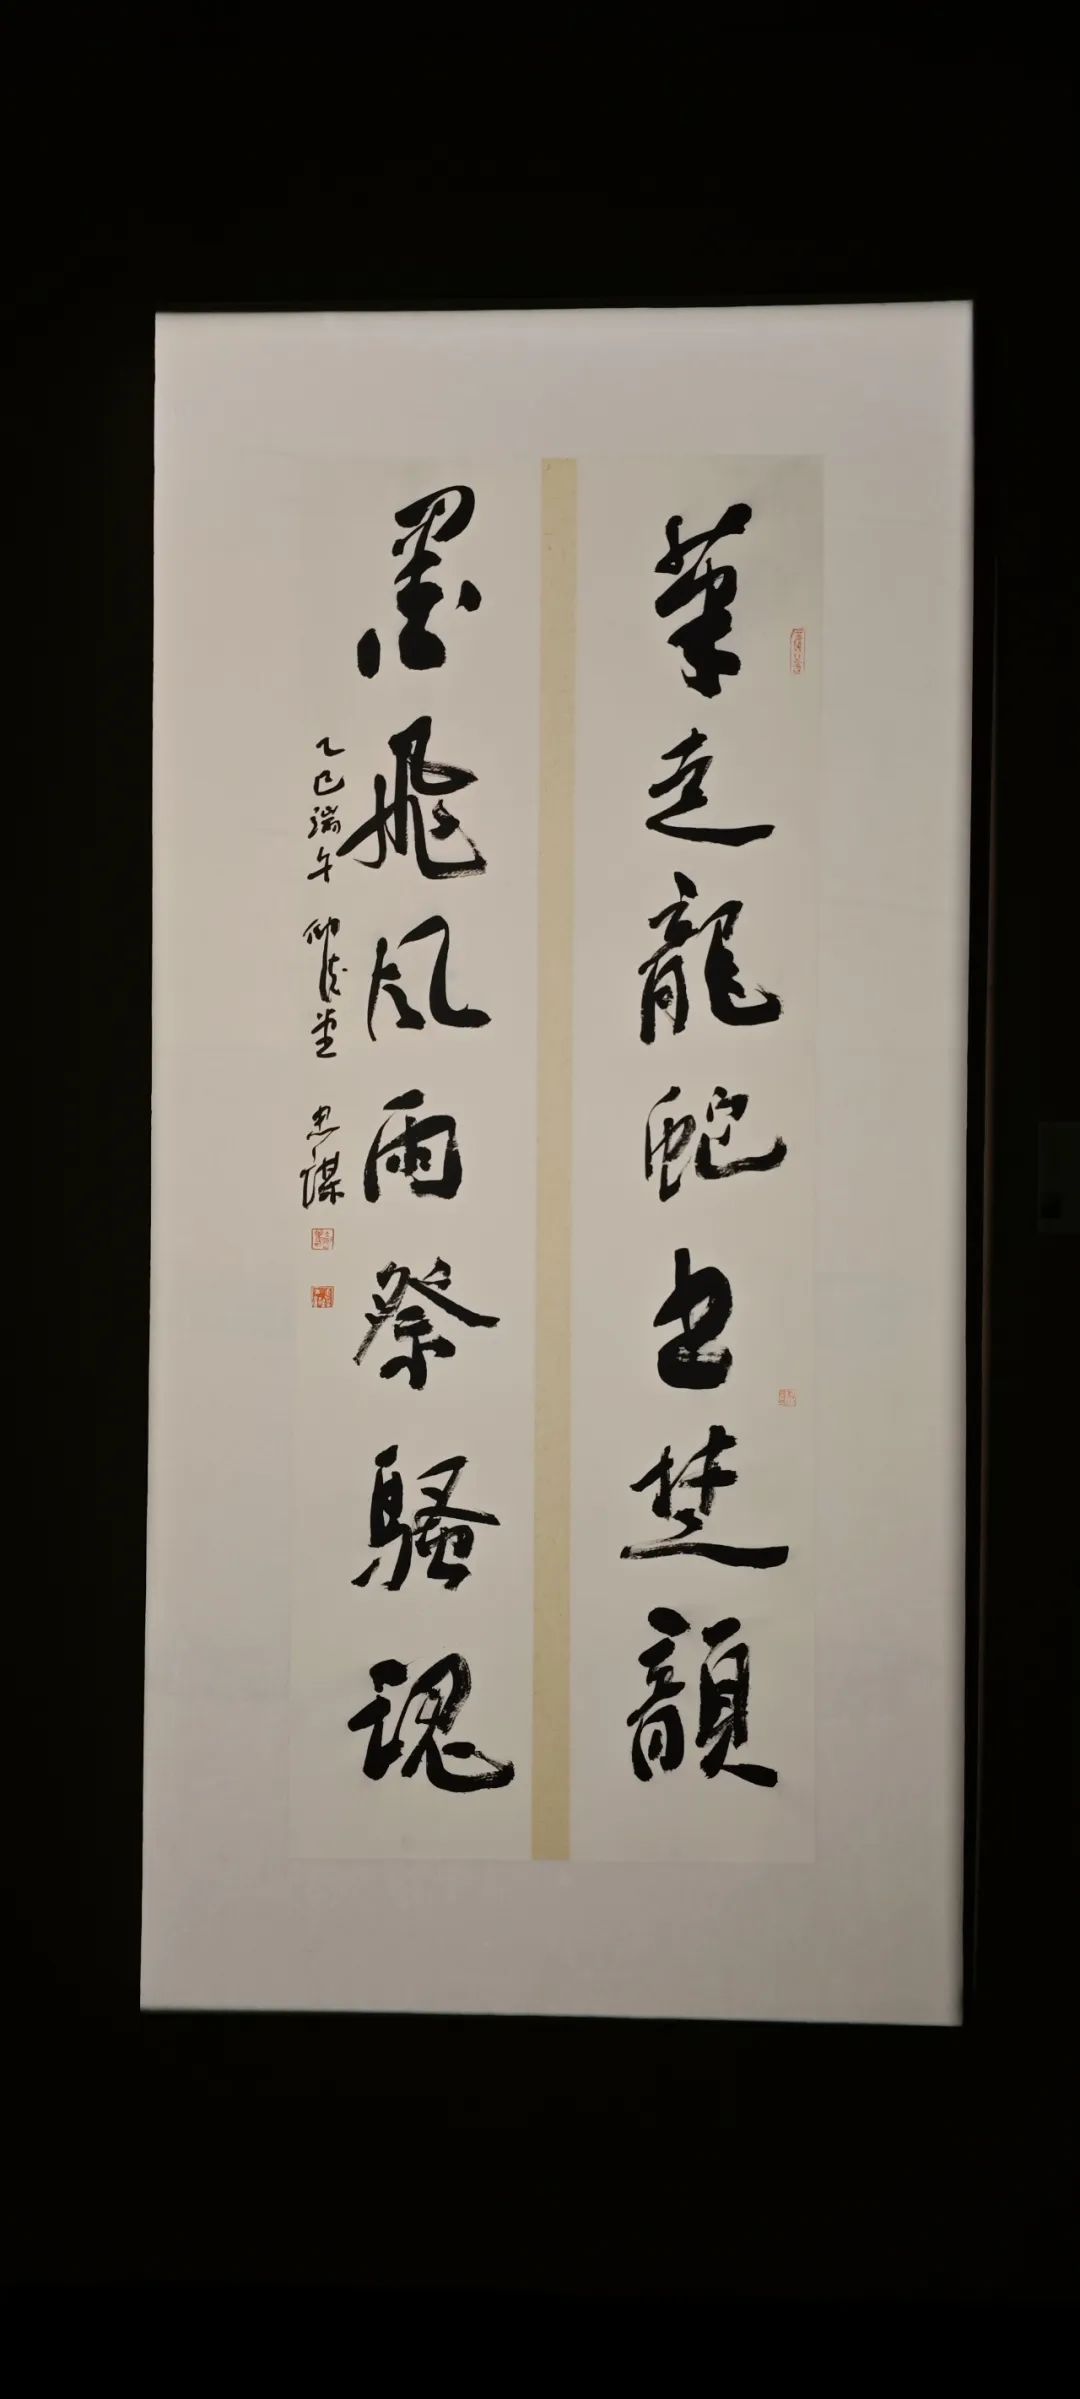 筆走龍蛇書楚韻
墨飛風雨祭騷魂
乙巳端午 仰浩堂 忠謀